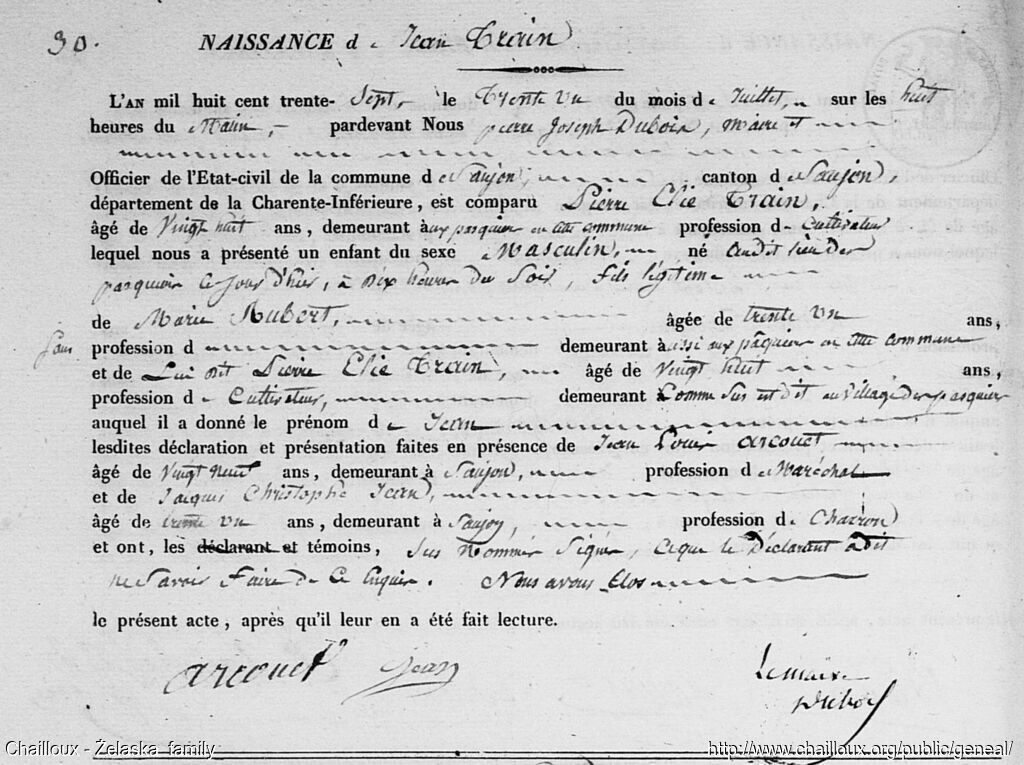 30.
NAISSANCE de Jean Train
L'AN mil huit cent trente-Sept, le Trente Un du mois de Juillet, sur les huit
heures du Matin, pardevant Nous pierre Joseph Dubois, maire et
Officier de l'Etat-civil de la commune de Saujon, canton de Saujon,
département de la Charente-Inférieure, est comparu Pierre Elie Train,
âgé de Vingt huit ans, demeurant aux pasquier en cette commune profession de Cultivateur
lequel nous a présenté un enfant du sexe Masculin, né audit lieu des
pasquier ce jour d'hier, à dix heures du Soir, fils légitime
de Marie Rubert, âgée de trente Un ans,
Sans profession d demeurant aussi aux pasquier en cette commune
et de Lui dit Pierre Elie Train, âgé de Vingt huit ans,
profession de Cultivateur, demeurant Comme Sus est dit au Village des pasquier
auquel il a donné le prénom de Jean
lesdites déclaration et présentation faites en présence de Jean Louis Arcouet
âgé de Vingt Neuf ans, demeurant à Saujon, profession de Maréchal
et de Jacques Christophe Jean,
âgé de trente Un ans, demeurant à Saujon, profession de Charron
et ont, les déclarant et témoins, Sus Nommés Signé, Ce que le Déclarant a dit
ne Savoir Faire de Ce Enquis. Nous avons Clos
le présent acte, après qu'il leur en a été fait lecture.
arcouet Jean
Le maire
Dubois
Chailloux - Żelaska family
http://www.chailloux.org/public/geneal/